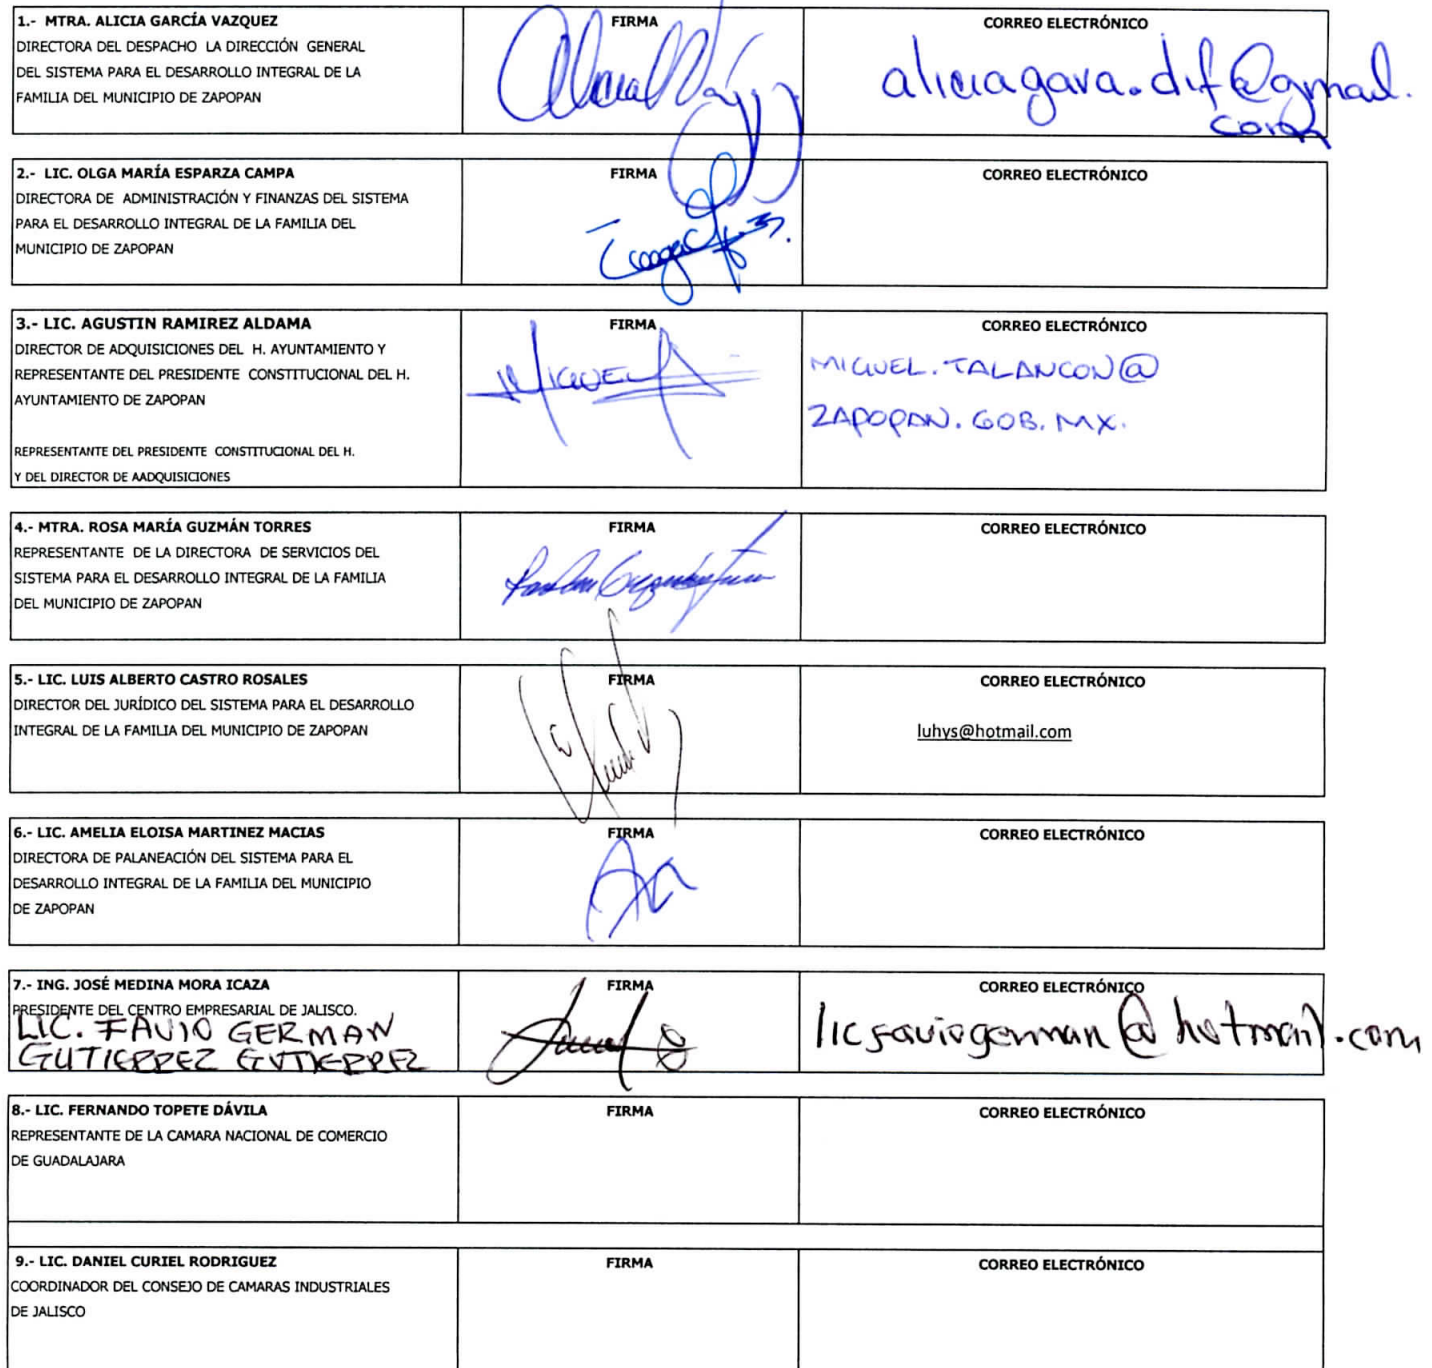 1.- MTRA. ALICIA GARCÍA VAZQUEZ
DIRECTORA DEL DESPACHO LA DIRECCIÓN GENERAL
DEL SISTEMA PARA EL DESARROLLO INTEGRAL DE LA
FAMILIA DEL MUNICIPIO DE ZAPOPAN
FIRMA
CORREO ELECTRÓNICO
aliciagava.dif@gmail.
com
2.- LIC. OLGA MARÍA ESPARZA CAMPA
DIRECTORA DE ADMINISTRACIÓN Y FINANZAS DEL SISTEMA
PARA EL DESARROLLO INTEGRAL DE LA FAMILIA DEL
MUNICIPIO DE ZAPOPAN
FIRMA
CORREO ELECTRÓNICO
3.- LIC. AGUSTIN RAMIREZ ALDAMA
DIRECTOR DE ADQUISICIONES DEL H. AYUNTAMIENTO Y
REPRESENTANTE DEL PRESIDENTE CONSTITUCIONAL DEL H.
AYUNTAMIENTO DE ZAPOPAN
REPRESENTANTE DEL PRESIDENTE CONSTITUCIONAL DEL H.
Y DEL DIRECTOR DE AADQUISICIONES
FIRMA
MIGUEL
CORREO ELECTRÓNICO
MIGUEL.TALANCON@
ZAPOPAN.GOB.MX.
4.- MTRA. ROSA MARÍA GUZMÁN TORRES
REPRESENTANTE DE LA DIRECTORA DE SERVICIOS DEL
SISTEMA PARA EL DESARROLLO INTEGRAL DE LA FAMILIA
DEL MUNICIPIO DE ZAPOPAN
FIRMA
CORREO ELECTRÓNICO
5.- LIC. LUIS ALBERTO CASTRO ROSALES
DIRECTOR DEL JURÍDICO DEL SISTEMA PARA EL DESARROLLO
INTEGRAL DE LA FAMILIA DEL MUNICIPIO DE ZAPOPAN
FIRMA
CORREO ELECTRÓNICO
luhys@hotmail.com
6.- LIC. AMELIA ELOISA MARTINEZ MACIAS
DIRECTORA DE PALANEACIÓN DEL SISTEMA PARA EL
DESARROLLO INTEGRAL DE LA FAMILIA DEL MUNICIPIO
DE ZAPOPAN
FIRMA
CORREO ELECTRÓNICO
7.- ING. JOSÉ MEDINA MORA ICAZA
PRESIDENTE DEL CENTRO EMPRESARIAL DE JALISCO.
LIC. FAVIO GERMAN
GUTIERREZ GUTIERREZ
FIRMA
CORREO ELECTRÓNICO
licfaviogerman@hotmail.com
8.- LIC. FERNANDO TOPETE DÁVILA
REPRESENTANTE DE LA CAMARA NACIONAL DE COMERCIO
DE GUADALAJARA
FIRMA
CORREO ELECTRÓNICO
9.- LIC. DANIEL CURIEL RODRIGUEZ
COORDINADOR DEL CONSEJO DE CAMARAS INDUSTRIALES
DE JALISCO
FIRMA
CORREO ELECTRÓNICO